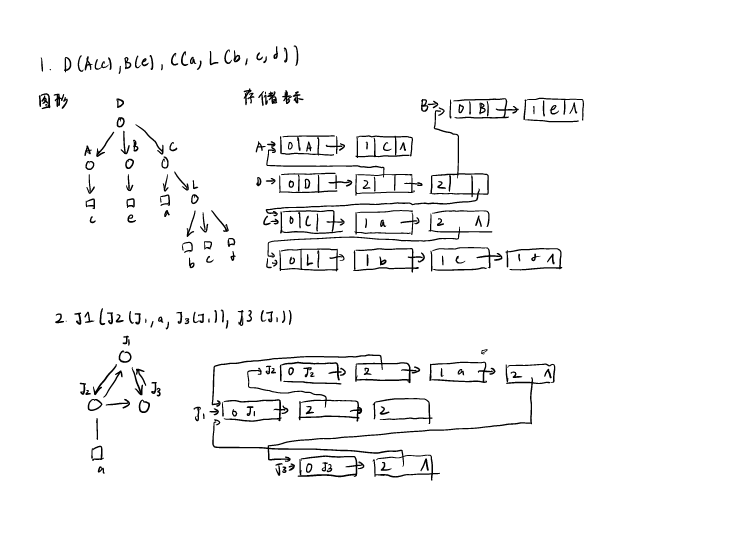 1. D(A(c), B(e), C(a, L(b, c, d))
图形 存储表示
D
A B C
L
c e a
b c d
B→ 0 B → 1 e ∧
A→ 0 A → 1 C ∧
D→ 0 D → 2 → 2
C→ 0 C → 1 a → 2 ∧
L→ 0 L → 1 b → 1 c → 1 d ∧
2. J1(J2(J1, a, J3(J1)), J3(J1))
J1
J2 J3
a
J2 0 J2 → 2 → 1 a → 2 ∧
J1→ 0 J1 → 2 → 2
J3→ 0 J3 → 2 ∧